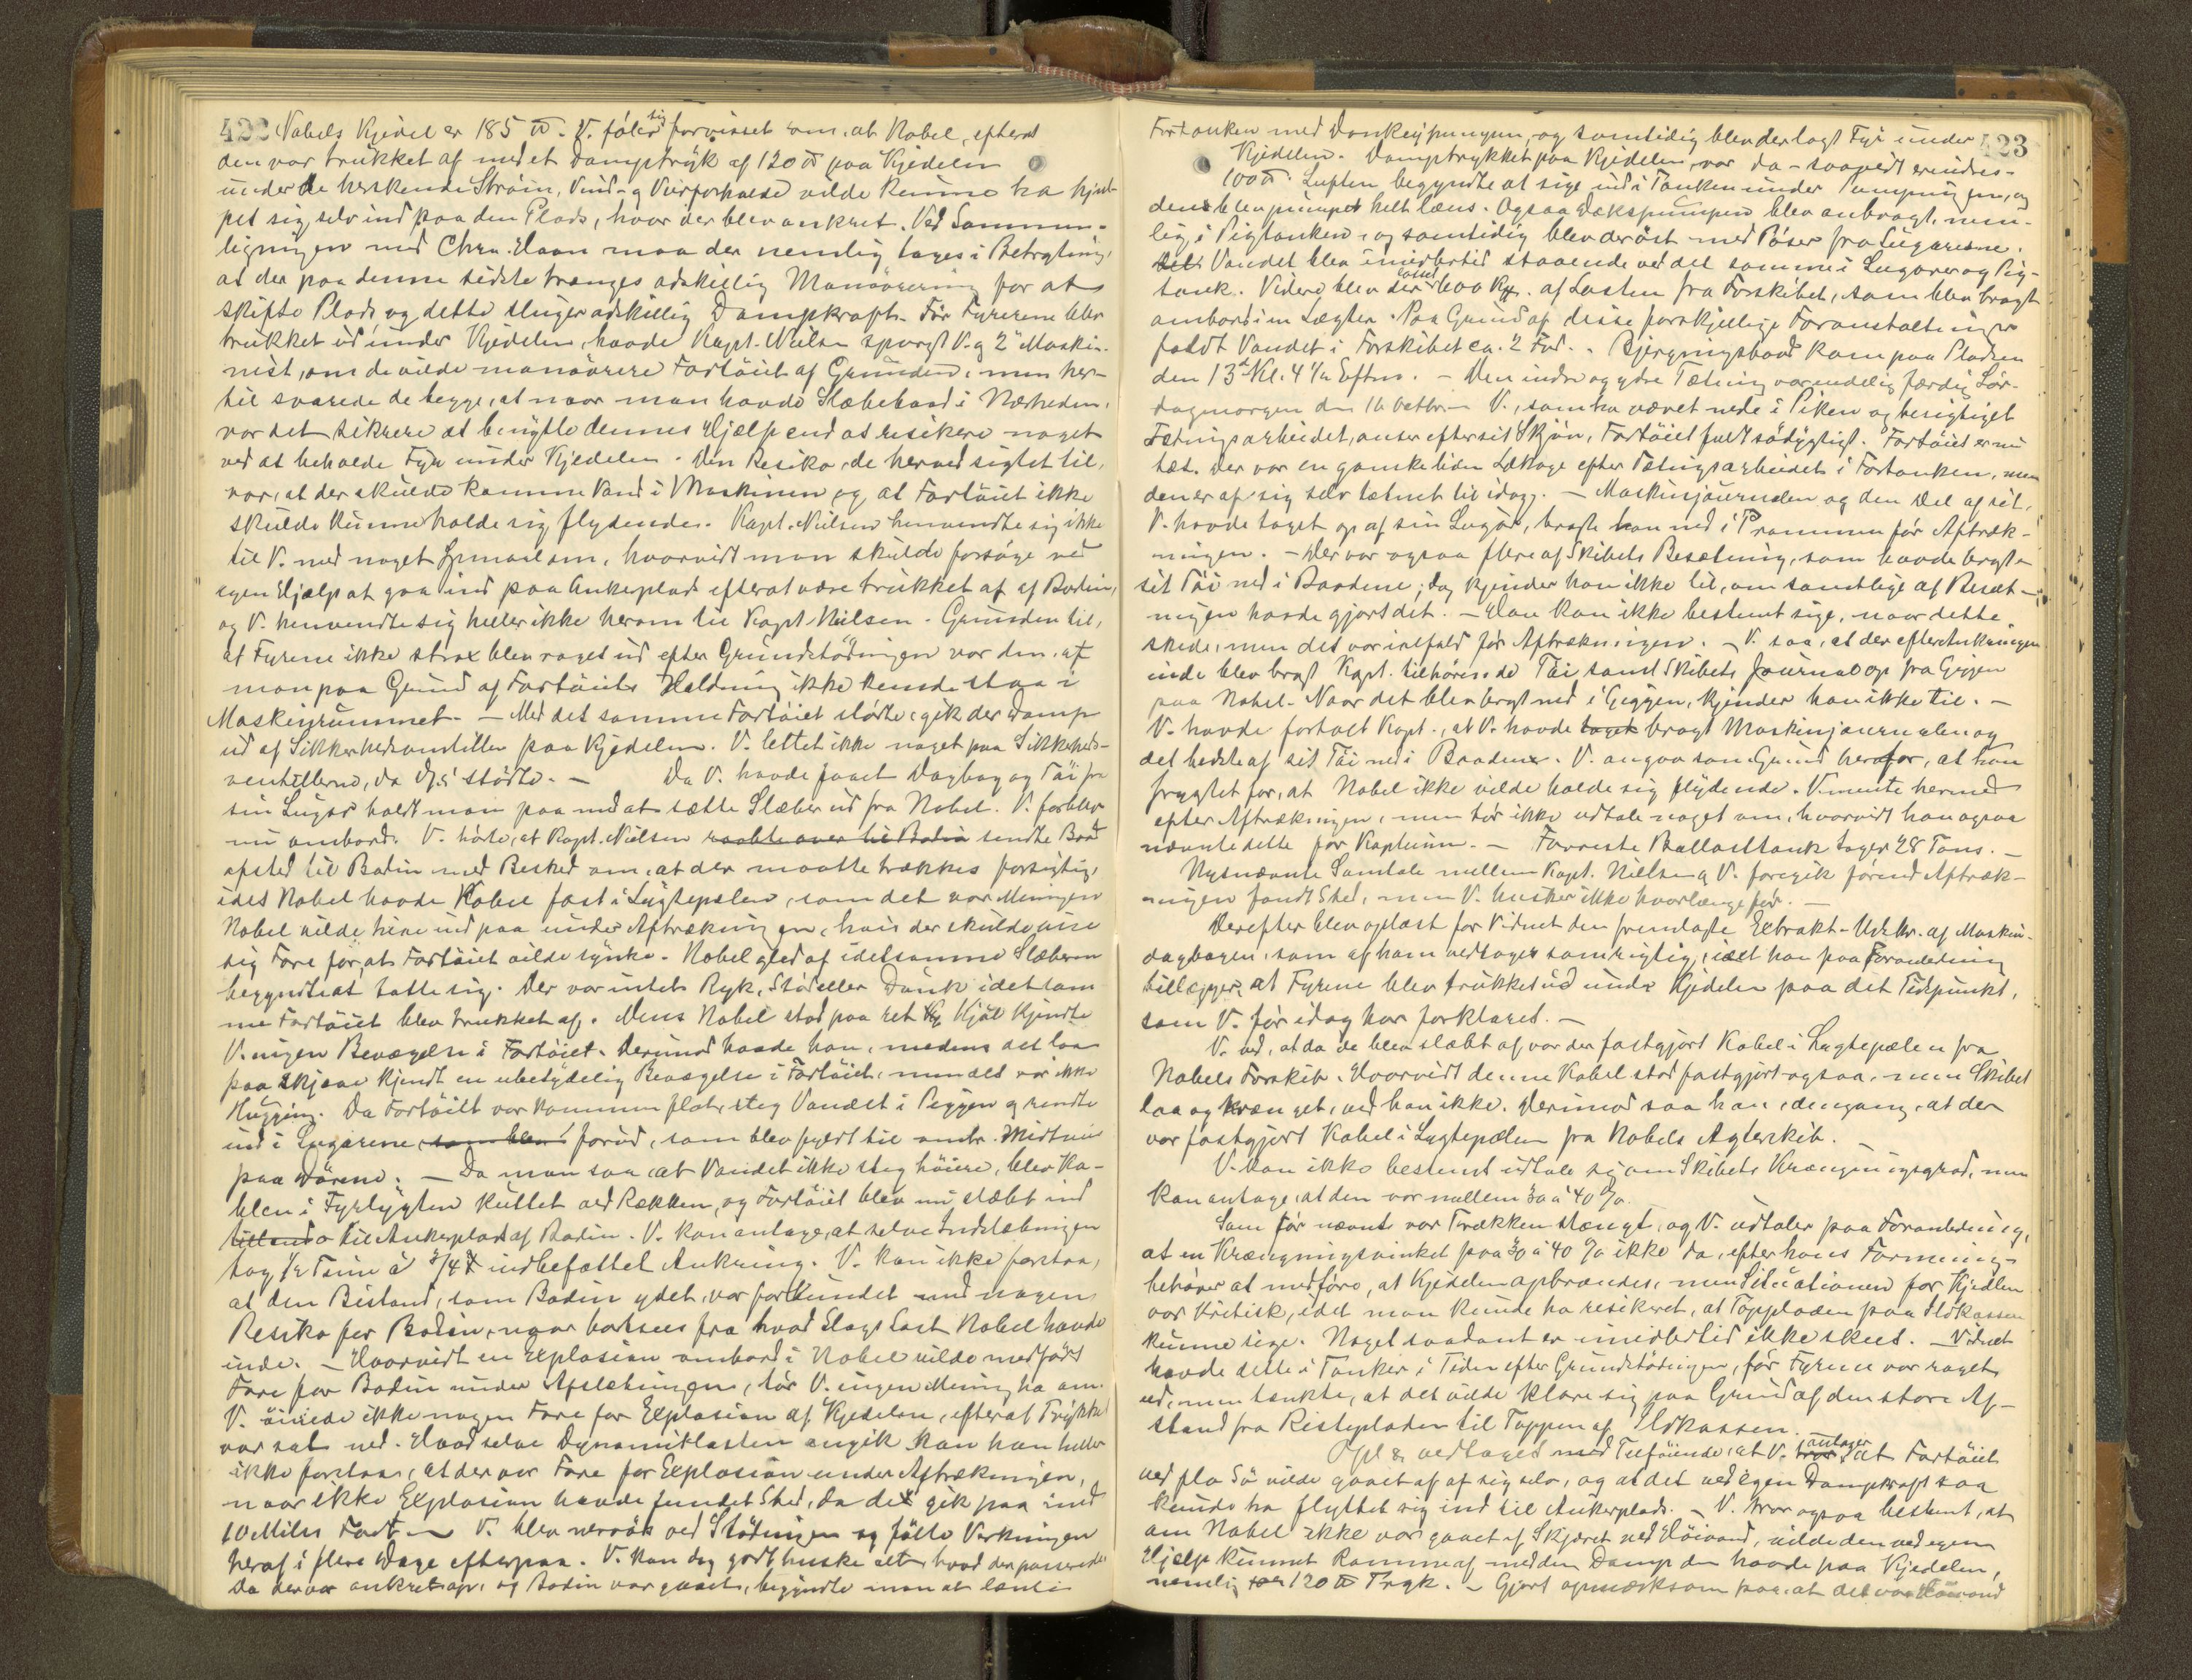 422 Nobels Kjedel er 185 ℔. V. føler sig forvisset om, at Nobel, efterat
den var trukket af med et Damptryk af 120 ℔ paa Kjedelen
under de herskende Strøm, Vind- og Veirforholde vilde kunne ha hjul-
pet sig selv ind paa den Plads, hvor der blev ankret. Ved Sammen-
ligningen med Chr. Haan maa der nemlig tages i Betragtning,
at der paa denne sidste trænges adskillig Manøvrering for at
skifte Plads og dette sluger adskillig Dampkraft. Før Fyrerne blev
trukket ud under Kjedelen, havde Kapt. Nielsen spurgt V. og 2' Maskin-
nist, om de vilde manøvrere Fartøiet af Grunden, men her-
til svarede de begge, at naar man havde Slæbebaad i Nærheden,
var det sikrere at benytte dennes Hjælp end at risikere noget
ved at beholde Fyr under Kjedelen. Den Resiko, de herved sigtet til,
var, at der skulde komme Vand i Maskinen og at Fartøiet ikke
skulde kunne holde sig flydende. Kapt. Nielsen henvendte sig ikke
til V. med noget Spørsmaal om, hvorvidt man skulde forsøge ved
egen Hjælp at gaa ind paa Ankerplads efterat være trukket af af Bodin,
og V. henvendte sig heller ikke herom til Kapt. Nielsen. Grunden til,
at Fyrene ikke strax blev raget ud efter Grundstødningen var den, at
man paa Grund af Fartøiets Heldning ikke kunde staa i
Maskinrummet. — Med det samme Fartøiet stødte, gik der Damp
ud af Sikkerhedsventillen paa Kjedelen. V. lettet ikke noget paa Sikkerheds-
ventillerne, da D/S stødte. — Da V. havde faaet Dagbog og Tøi fra
sin Lugar holdt man paa med at sætte Slæber ud fra Nobel. V. forblev
nu ombord. V. hørte, at Kapt. Nielsen raabte over til Bodin sendte Baad
afsted til Bodin med Besked om, at der maatte trækkes forsigtig,
idet Nobel havde Kabel fast i Lygtepælen, som det var Meningen
Nobel vilde hive ind paa under Aftrækningen, hvis der skulde vise
sig Fare for, at Fartøiet vilde synke. Nobel gled af idetsamme Slæberen
begyndte at totte sig. Der var intet Ryk, Stød eller Dunk idetsam-
me Fartøiet blev trukket af. Mens Nobel stod paa ret Kjøl kjendte
V. ingen Bevægelse i Fartøiet. Derimod havde han, medens det laa
paa skjæve kjendt en ubetydelig Bevægelse i Fartøiet, men det var ikke
Hugging. Da Fartøiet var kommen flot, steg Vandet i Piggen og rendte
ind i Lugarene som blev forud, som blev fyldt til omtr. Midtveis
paa Dørene. — Da man saa, at Vandet ikke steg høiere, blev Ka-
blen i Fyrlygten kuttet ved Rækken, og Fartøiet blev nu slæbt ind
tillands til Ankerplads af Bodin. V. kan antage, at selve Indslæbningen
tog ½ Time à ¾ T indbefattet Ankring. V. kan ikke forstaa,
at den Bistand, som Bodin ydet, var forbundet med nogen
Resiko for Bodin, naar bortsees fra hvad Slags Last Nobel havde
inde. — Hvorvidt en Explosion ombord i Nobel vilde medført
Fare for Bodin under Afslæbningen, tør V. ingen Mening ha om.
V. øinede ikke nogen Fare for Explosion af Kjedelen, efterat Trykket
var sat ned. Hvad selve Dynamitlasten angik kan han heller
ikke forstaa, at der var Fare for Explosion under Aftrækningen,
naar ikke Explosion havde fundet Sted, da det gik paa med
10 Miles Fart. — V. blev nervøs ved Stødningen og følte Virkningen
heraf i flere Dage efterpaa. V. kan dog godt huske alt, hvad der passerede
Da der var ankret op, og Bodin var gaaet, begyndte man at lænse
423
Fortanken med Donkeypumpen, og samtidig blev der lagt Fyr under
Kjedelen. Damptrykket paa Kjedelen var da – saavidt erindres –
100 ℔. Luften begyndte at sige ud i Tanken under Pumpningen, og
den blev pumpet helt læns. Ogsaa Dækspumpen blev anbragt, nem-
lig i Pigtanken, og samtidig blev der øst med Pøser fra Lugarerne.
Vandet blev imidlertid staaende ved det samme i Lugarer og Pig-
tank. Videre blev der losset 600 Kg. af Lasten fra Forskibet, som blev bragt
ombord i en Lægter. Paa Grund af disse forskjellige Foranstaltninger
faldt Vandet i Forskibet ca. 2 Fod. Bjergningsbaad kom paa Pladsen
den 13de Kl. 4 ½ Eftm. — Den indre og ydre Tætning var endelig færdig Lør-
dagmorgen den 16 Oktbr. — V., som har været nede i Piken og besigtiget
Tætningsarbeidet, anser efter sit Skjøn, Fartøiet fuldt sødygtigt. Fartøiet er nu
tæt. Der var en ganske liden Lækage efter Tætningsarbeidet i Fortanken, men
den er af sig selv tætnet til idag. — Maskinjournalen og den Del af sit,
V. havde taget op af sin Lugar, bragte han ned i Prammen før Aftræk-
ningen. — Der var ogsaa flere af Skibets Besætning, som havde bragt
sit Tøi ned i Baadene; dog kjender han ikke til, om samtlige af Besæt-
ningen havde gjort det. — Han kan ikke bestemt sige, naar dette
skede, men det var ialfald før Aftrækningen. — V. saa, at der efter Ankringen
inde blev bragt Kapt. tilhørende Tøi samt Skibets Journal op fra Giggen
paa Nobel. Naar det blev bragt ned i Giggen, kjender han ikke til. —
V. havde fortalt Kapt., at V. havde taget bragt Maskinjournalen og
det bedste af sit Tøi ned i Baadene. V. angav som Grund herfor, at han
frygtet for, at Nobel ikke vilde holde sig flydende. V. mente hermed
efter Aftrækningen, men tør ikke udtale noget om, hvorvidt han ogsaa
nævnte dette for Kapteinen. — Forreste Ballasttank tager 28 Tons. —
Nysnævnte Samtale mellem Kapt. Nielsen og V. foregik førend Aftræk-
ningen fandt Sted, men V. husker ikke hvorlænge før. —
Derefter blev oplæst for Vidnet den fremlagte Extrakt-Udskr. af Maskin-
dagbogen, som af ham vedtages som rigtig, idet han paa Foranledning
tillægger, at Fyrene blev trukket ud under Kjedelen paa det Tidspunkt,
som V. før idag har forklaret. —
V. ved, at da de blev slæbt af var der fastgjort Kabel i Lygtepælen fra
Nobels Forskib. Hvorvidt denne Kabel stod fastgjort ogsaa, men Skibet
laa og krænget, ved han ikke. Derimod saa han, dengang, at der
var fastgjort Kabel i Lygtepælen fra Nobels Agterskib. —
V. kan ikke bestemt udtale sig om Skibets Krængningsgrad, men
kan antage, at den var mellem 30 à 40 %.
Som før nævnt var Trækken stængt, og V. udtaler paa Foranledning,
at en Krængningsvinkel paa 30 à 40 % ikke da, efter hans Formening
behøver at medføre, at Kjedelen opbrændes, men Situationen for Kjedlen
var kritisk, idet man kunde ha resikeret, at Topploden paa Ildkassen
kunne sige. Noget saadant er imidlertid ikke skeet. — Vidnet
havde dette i Tanker i Tiden efter Grundstødningen, før Fyrene var raget
ud, men tænkte, at det vilde klare sig paa Grund af den store Af-
stand fra Ristepladen til Toppen af Ildkassen.
Opl. & vedtaget med Tilføiende, at V. tror antager at Fartøiet
ved flo Sø vilde gaaet af af sig selv, og at det ved egen Dampkraft saa
kunde ha flyttet sig ind til Ankerplads. — V. tror ogsaa bestemt, at
om Nobel ikke var gaaet af Skjæret ved Høivand, vilde den ved egen
Hjælp kunnet komme af med den Damp den havde paa Kjedelen,
nemlig 120 ℔ Tryk. — Gjort opmærksom paa, at det var Høivand